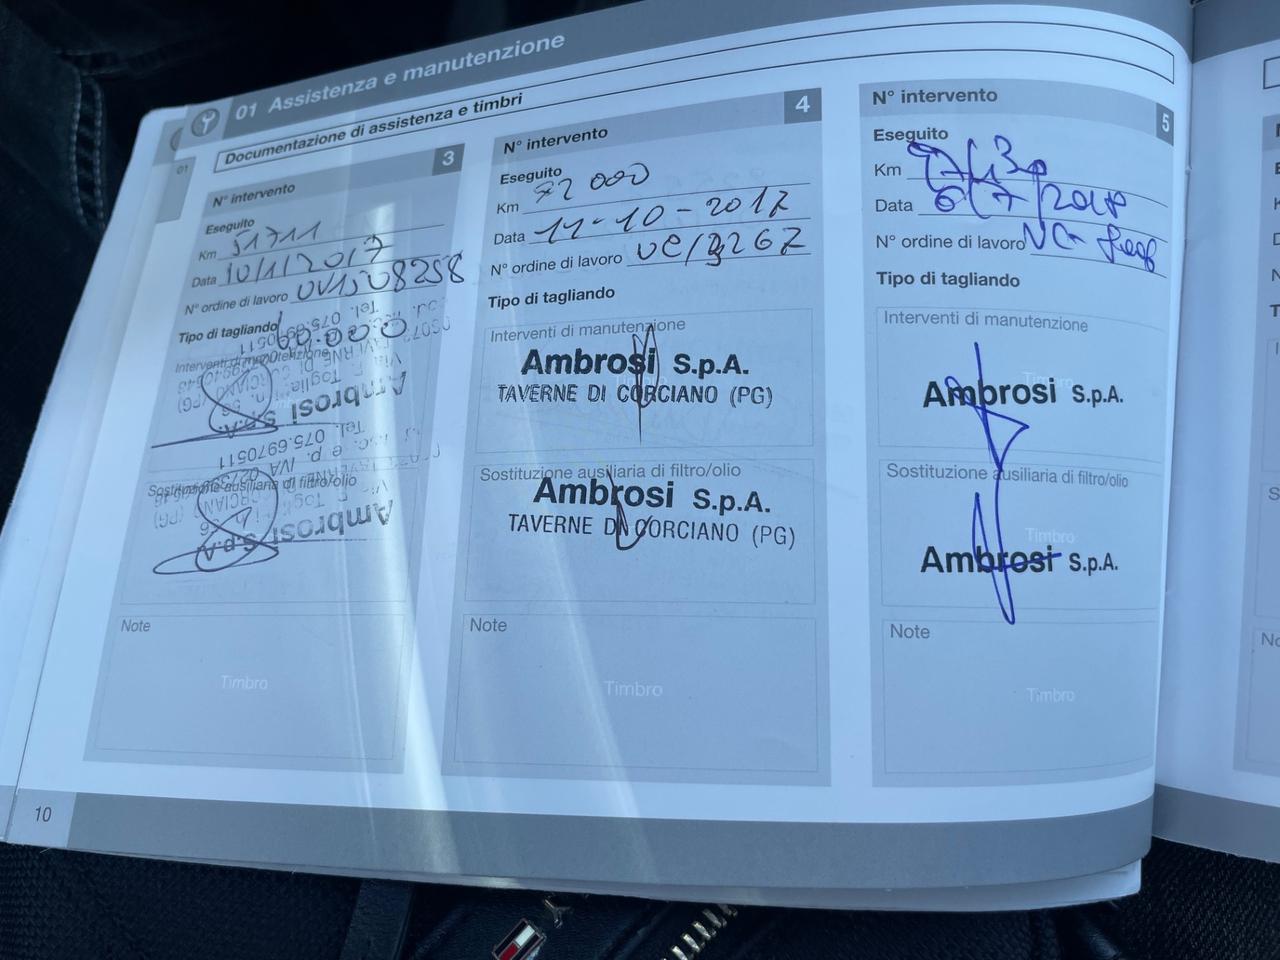 01 Assistenza e manutenzione
Documentazione di assistenza e timbri
01
N° intervento 3
Eseguito
Km 51711
Data 10/1/2017
N° ordine di lavoro
Tipo di tagliando
60.000
Interventi di manutenzione
Ambrosi S.p.A.
Tel. 075.6970511
Sostituzione ausiliaria di filtro/olio
Ambrosi S.p.A.
Note
Timbro
N° intervento 4
Eseguito
Km 72 000
Data 11-10-2017
N° ordine di lavoro
Tipo di tagliando
Interventi di manutenzione
Ambrosi S.p.A.
TAVERNE DI CORCIANO (PG)
Sostituzione ausiliaria di filtro/olio
Ambrosi S.p.A.
TAVERNE DI CORCIANO (PG)
Note
Timbro
N° intervento 5
Eseguito
Km
Data 6/7/2018
N° ordine di lavoro
Tipo di tagliando
Interventi di manutenzione
Timbro
Ambrosi S.p.A.
Sostituzione ausiliaria di filtro/olio
Timbro
Ambrosi S.p.A.
Note
Timbro
10